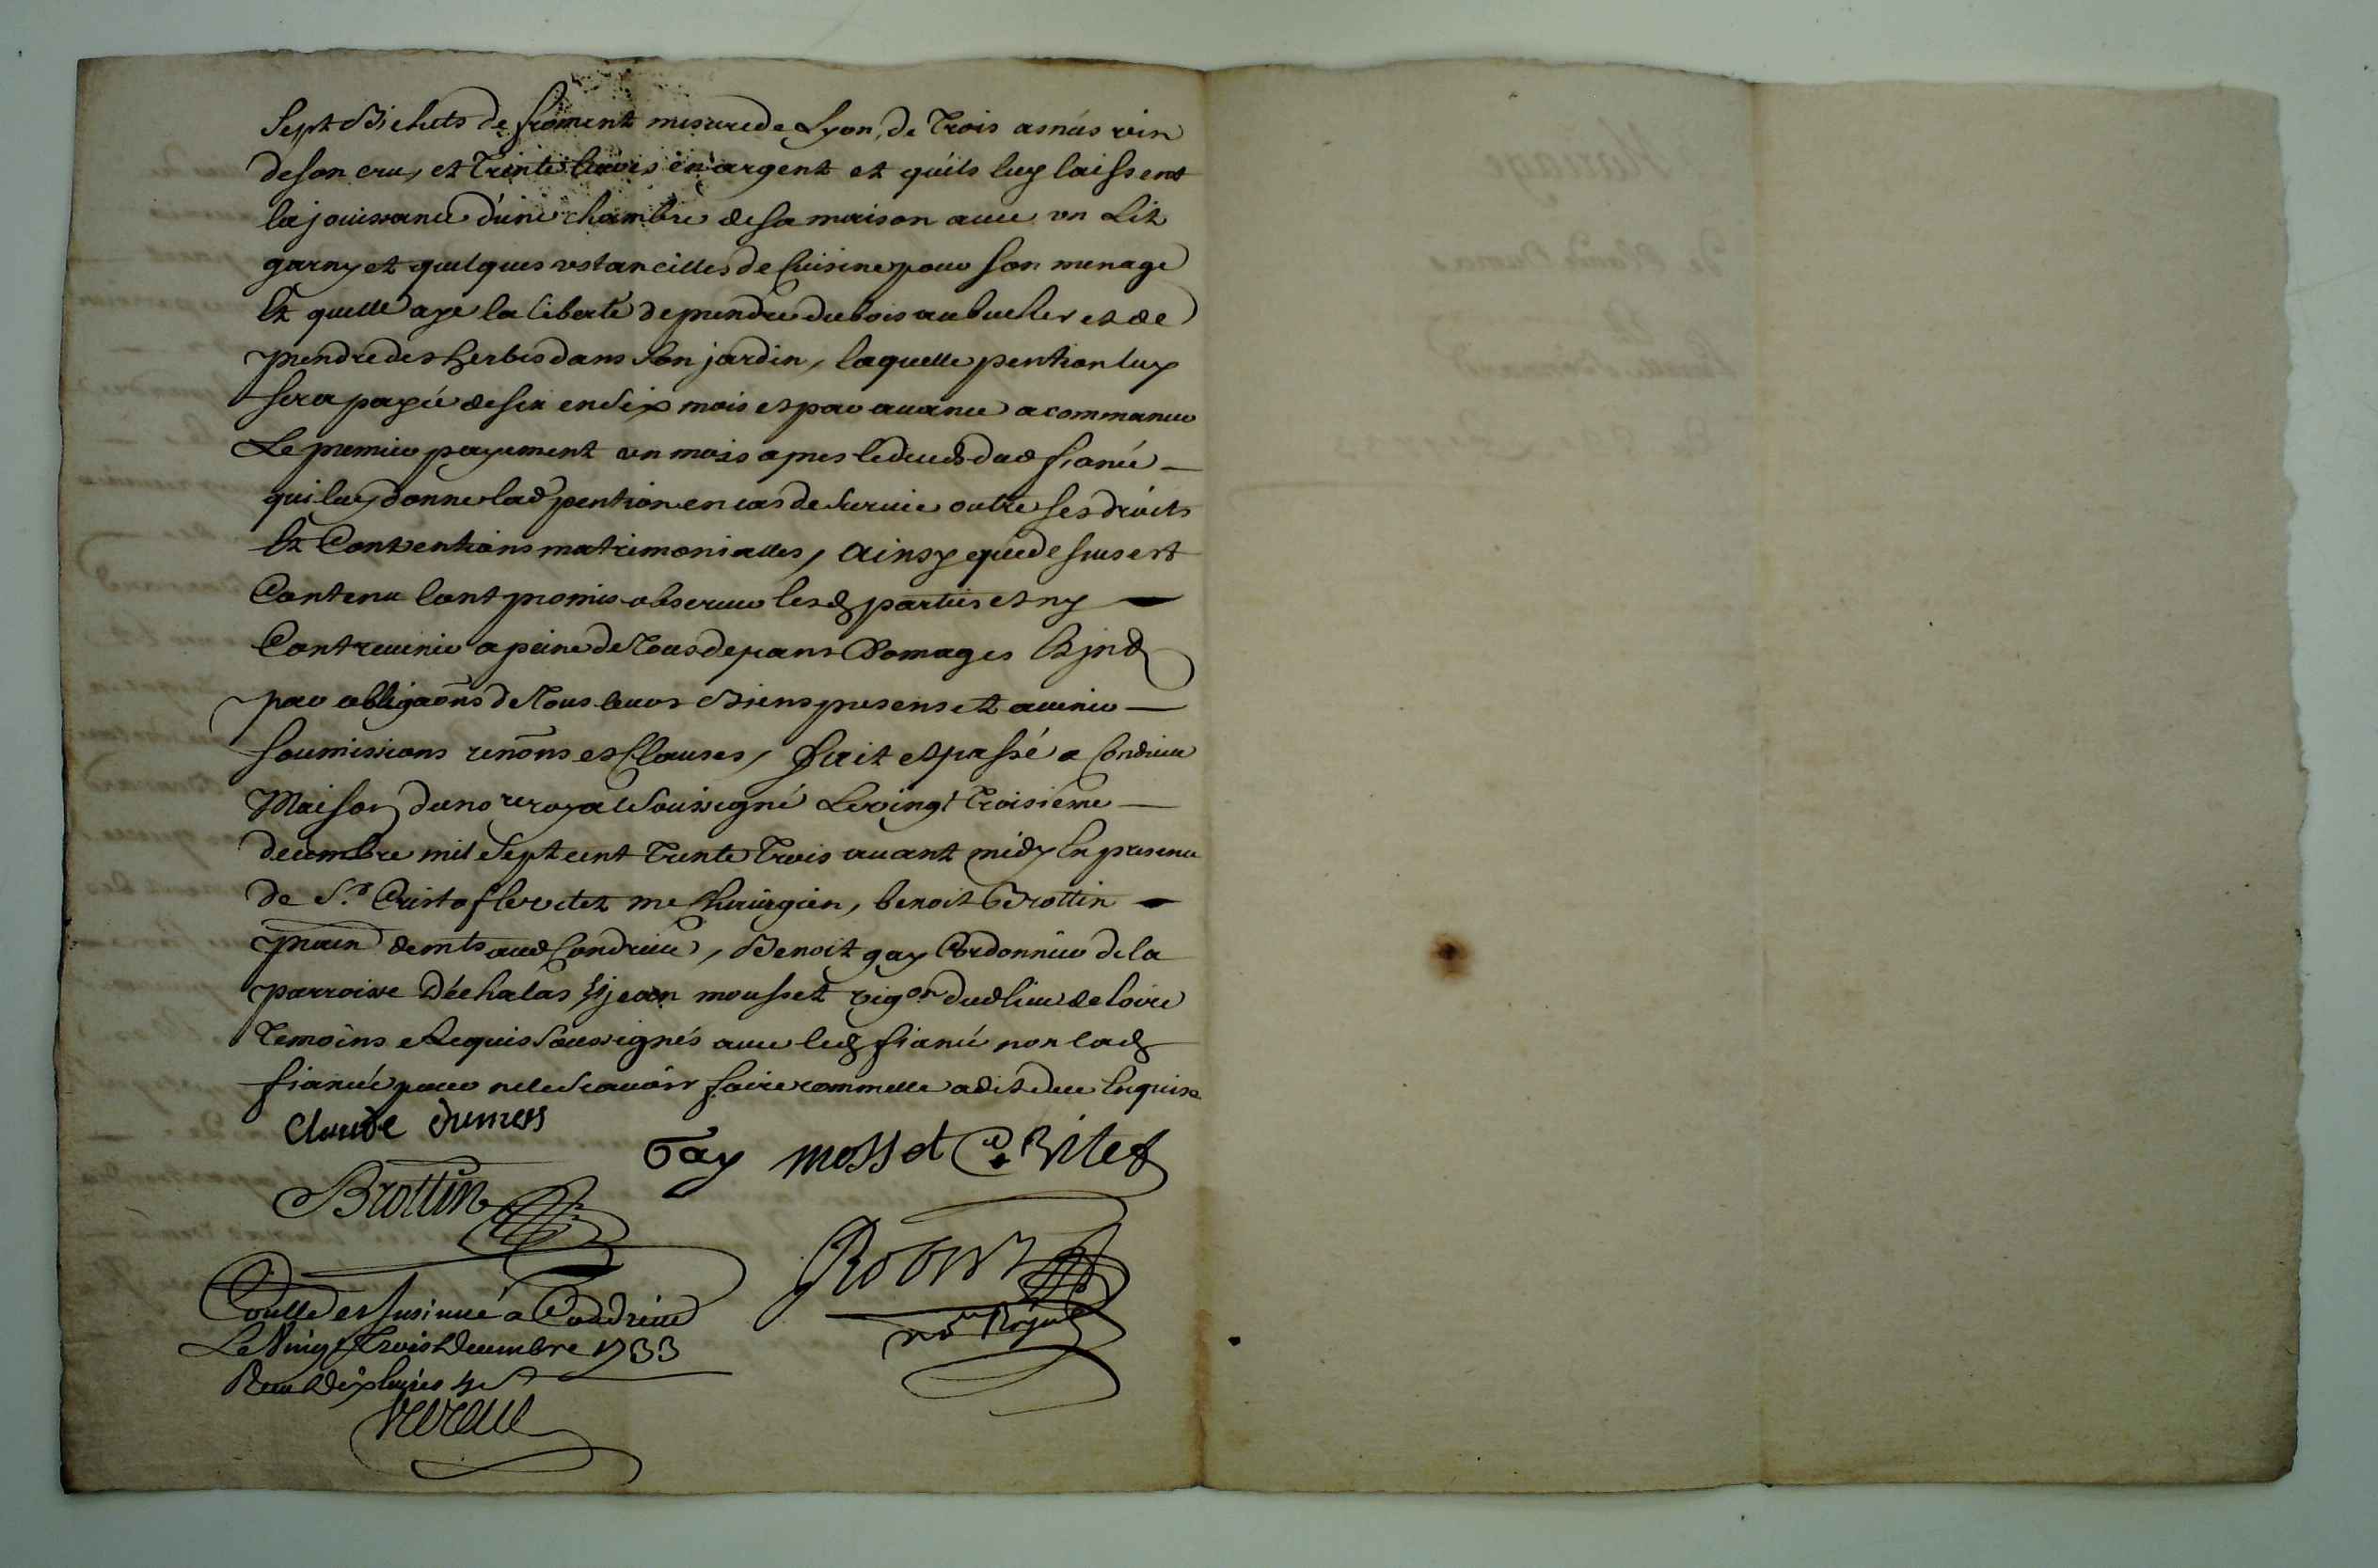 Sept Bichets de froment mesure de Lyon, de Trois asnées vin
de son cru, et Trente livres en argent et qu'ils luy laissent
la jouissance d'une chambre de sa maison avec un Lit
garny et quelques ustancilles de Cuisine pour son menage
Et quelle aye la liberté de prendre du bois au bucher et de
prendre des herbes dans son jardin, laquelle pention luy
sera payée de six en six mois et par avance a commancer
Le premier payement un mois apres le deceds dud fiancé
qui luy donne lad pention en cas de survie outre ses droits
Et Conventions matrimonialles, Ainsy que dessus est
Contenu l'ont promis observer lesd parties et ny
Contrevenir a peine de Tous depans Domages Et jntd
par obligaons de Tous leurs Biens presens et avenir
soumissions renons et Clauses, fait et passé a Condrieu
Maison du nore royal soussigné Le vingt Troisieme
decembre mil sept cent Trente Trois avant midy En presence
de Sr. Cristofle vitet me Chirurgien, benoit Brottin
demts aud Condrieu, Benoit gay Cordonnier de la
parroisse D'échalas, & jean mousset vigon dud lieu de loire
Temoins Requis soussignés avec led fiancé non lad
fiancée pour ne le scavoir faire comme elle a dit de ce Enquise
Claude Dumas
Gay mosset C. Vitet
Brottin
Robert
nore Royal
Contllé et Insinué a Condrieu
Le Vingt Trois Decembre 1733
Receu Dix livres 4 s